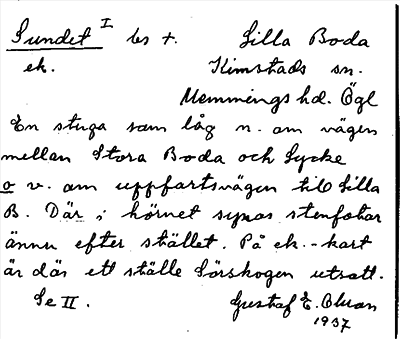 Sundet I bs +. Lilla Boda
ek. Kimstads sn.
Memmings hd. Ögl
En stuga som låg n. om vägen
mellan Stora Boda och Lycke
o v. om uppfartsvägen till Lilla
B. Där i hörnet synas stenfotar
ännu efter stället. På ek.-kart
är där ett ställe Lörskogen utsatt.
Se II. Gustaf E. Olsson
1937